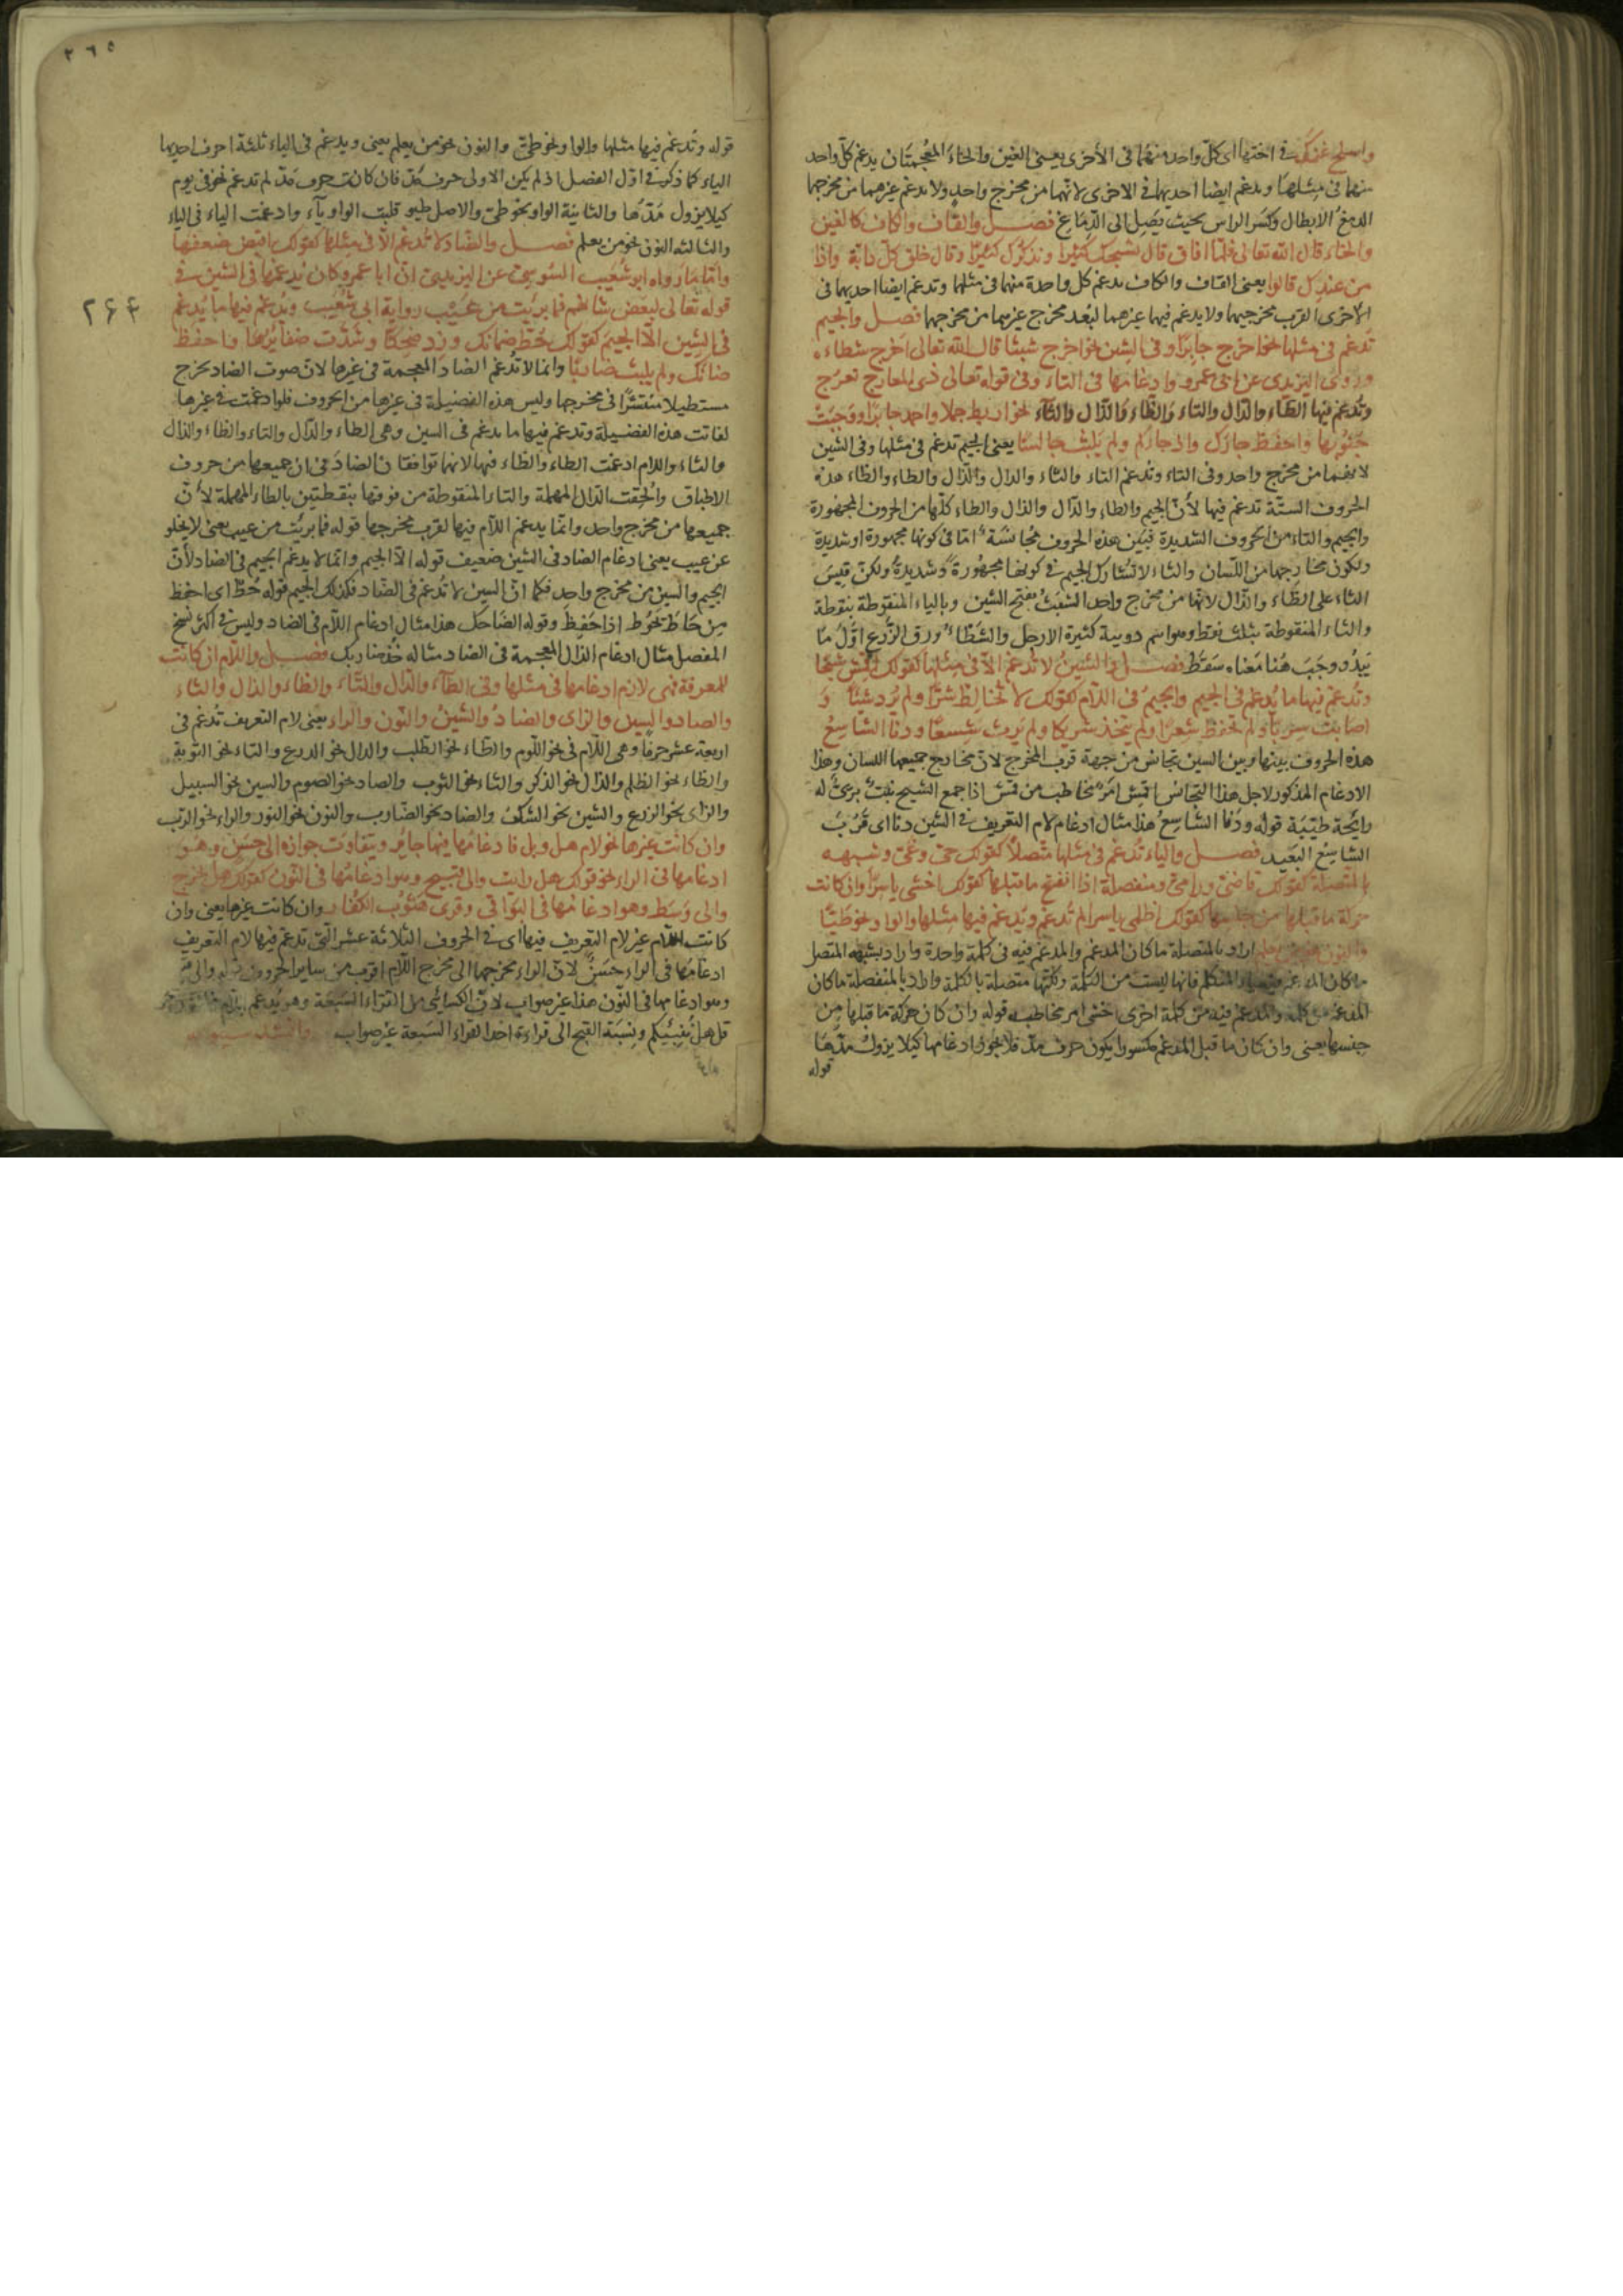 واسلخ غنمك في اختها اى كلّ واحد منهما فى الأخرى يعنى الغين والخاء المعجمتان يدغم كل واحد
منهما فى مثلها ويدغم ايضا احديهما فى الاخرى لانهما من مخرج واحد ولا يدغم غيرهما من مخرجها
الدمغ الابطال وكسر الراس بحيث يصل الى الدماغ فصل والقاف والكاف كالغين
والخاء قال الله تعالى فلما افاق قال نسبحك كثيرا ونذكرك كثيرا وقال خلق كل دابة واذا
من عندك قالوا يعنى القاف والكاف يدغم كل واحدة منهما فى مثلها وتدغم ايضا احديهما فى
الأخرى لقرب مخرجيهما ولا يدغم فيهما غيرهما لبعد مخرج غيرهما من مخرجهما فصل والجيم
تدغم فى مثلها نحو اخرج جابرا وفى الشين نحو اخرج شيئا قال الله تعالى اخرج شطاءه
وروى اليزيدى عن ابى عمرو ادغامها فى التاء وفى قوله تعالى ذى المعارج تعرج
وتدغم فيها الطاء والدال والتاء والظاء والذال والثاء نحو اربط جملا واحمد جابرا ووجبت
جنوبها واحفظ جارك واذ جاؤكم ولم يلبث جالسا يعنى الجيم تدغم فى مثلها وفى الشين
لانهما من مخرج واحد وفى التاء وتدغم التاء والثاء والدال والذال والطاء والظاء هذه
الحروف الستة تدغم فيها لأن الجيم والطاء والدال والذال والظاء كلها من الحروف المجهورة
والجيم والتاء من الحروف الشديدة فبين هذه الحروف مجانسة امّا فى كونها مجهورة او شديدة
ولكون مخارجها من اللسان والثاء لا تشارك الجيم فى كونها مجهورة وشديدة ولكن قيس
الثاء على الظاء والذال لانها من مخرج واحد الشبث بفتح الشين وبالباء المنقوطة بنقطة
والثاء المنقوطة بثلث نقط وهو اسم دويبة كثيرة الارجل والشطاء ورق الزرع اوّل ما
يبدو وجب هنا معناه سقط فصل والشين لا تدغم الّا فى مثلها كقولك اقمش شيحا
وتدغم فيها ما يدغم فى الجيم والجيم فى اللام كقولك لا تخالط شرّا ولم يرد شيئا و
اصابت شربا ولم يحفظ شعرا ولم يتخذ شريكا ولم يرث شسعا ودنا الشاسع
هذه الحروف بينها وبين السين تجانس من جهة قرب المخرج لان مخارج جميعها اللسان وهذا
الادغام المذكور لاجل هذا التجانس اقمش امر مخاطب من قمش اذا جمع الشيح نبت برّى له
رايحة طيبة قوله ودنا الشاسع هذا مثال ادغام لام التعريف فى الشين دنا اى قرب
الشاسع البعيد فصل والياء تدغم فى مثلها متصلا كقولك حىّ وعىّ وشبيهه
بالمتصلة كقولك قاضىّ ورامىّ ومنفصلة اذا انفتح ما قبلها كقولك اخشى ياسرا وان كانت
حركة ما قبلها من جنسها كقولك اظلمى ياسرا لم تدغم ويدغم فيها مثلها والواو نحو طيّا
والنون نحو من يعلم اراد بالمتصلة ما كان المدغم والمدغم فيه فى كلمة واحدة واراد بشبيه المتصل
ما كان المدغم فيه ياء المتكلم فانها ليست من الكلمة ولكنّها متصلة بالكلمة واراد بالمنفصلة ما كان
المدغم من كلمة والمدغم فيه من كلمة اخرى اخشى امر مخاطبة قوله وان كان حركة ما قبلها من
جنسها يعنى وان كان ما قبل المدغم مكسورا يكون حرف مدّ فلا يجوز ادغامها كيلا يزول مدّها
قوله
٢٦٥
قوله وتدغم فيها مثلها والواو نحو طىّ والنون نحو من يعلم يعنى ويدغم فى الياء ثلثة احرف احديها
الياء كما ذكر فى اوّل الفصل اذ لم يكن الاولى حرف مدّ فان كانت حرف مدّ لم تدغم نحو فى يوم
كيلا يزول مدّها والثانية الواو نحو طىّ والاصل طيو قلبت الواو ياء وادغمت الياء فى الياء
والثالثة النون نحو من يعلم فصل والضاد لا تدغم الّا فى مثلها كقولك اقبض ضعفها
وامّا ما رواه ابو شعيب السوسى عن اليزيدى انّ ابا عمرو كان يدغمها فى الشين فى
قوله تعالى لبعض شانهم فما برئت من عيب رواية ابى شعيب ويدغم فيها ما يدغم
٢۶۴
فى الشين الّا الجيم كقولك حط ضمانك وزد ضحكا وشدّت ضفائرها واحفظ
ضانك ولم يلبث ضاربا وانما لا تدغم الضاد المعجمة فى غيرها لان صوت الضاد يخرج
مستطيلا منتشرا فى مخرجها وليس هذه الفضيلة فى غيرها من الحروف فلو ادغمت فى غيرها
لفاتت هذه الفضيلة وتدغم فيها ما يدغم فى الشين وهى الطاء والدال والتاء والظاء والذال
والثاء واللام ادغمت الطاء والظاء فيها لانهما توافقان الضاد فى ان جميعها من حروف
الاطباق والحقت الدال المهملة والتاء المنقوطة من فوقها بنقطتين بالطاء المهملة لأن
جميعها من مخرج واحد وانّما يدغم اللام فيها لقرب مخرجها قوله فما برئت من عيب يعنى لا يخلو
عن عيب يعنى ادغام الضاد فى الشين ضعيف قوله الّا الجيم وانّما لا يدغم الجيم فى الضاد لأن
الجيم والشين من مخرج واحد فكما انّ الشين لا تدغم فى الضاد فكذلك الجيم قوله حط اى احفظ
من حاط يحوط اذا حفظ وقوله الضاحك هذا مثال ادغام اللام فى الضاد وليس فى اكثر نسخ
المفصل مثال ادغام الذال المعجمة فى الضاد مثاله خذ ضاربك فصل واللام ان كانت
للمعرفة فهى لازم ادغامها فى مثلها وفى الطاء والدال والتاء والظاء والذال والثاء
والصاد والسين والزاى والضاد والشين والنون والراء يعنى لام التعريف تدغم فى
اربعة عشر حرفا وهى اللام فى نحو اللوم والطاء نحو الطلب والدال نحو الدرع والتاء نحو التوبة
والظاء نحو الظلم والذال نحو الذكر والثاء نحو الثوب والصاد نحو الصوم والسين نحو السبيل
والزاى نحو الزرع والشين نحو الشك والضاد نحو الضارب والنون نحو النور والراء نحو الرب
وان كانت غيرها نحو لام هل وبل فادغامها فيها جائز ويتفاوت جوازه الى حسن وهو
ادغامها فى الراء نحو قولك هل رايت والى قبيح وهو ادغامها فى النون كقولك هل نخرج
والى وسط وهو ادغامها فى البواقى وقرئ هثوّب الكفار وان كانت غيرها يعنى وان
كانت اللام غير لام التعريف فيها اى فى الحروف الثلاثة عشر التى تدغم فيها لام التعريف
ادغامها فى الراء حسن لانّ الراء مخرجها الى مخرج اللام اقرب من ساير الحروف قوله والى قبيح
وهو ادغامها فى النون هذا غير صواب لان الكسائى من القراء السبعة وهو يدغم
قل هل ننبئكم ونسبة القبح الى قراءة احد القراء السبعة غير صواب وانشد سيبويه